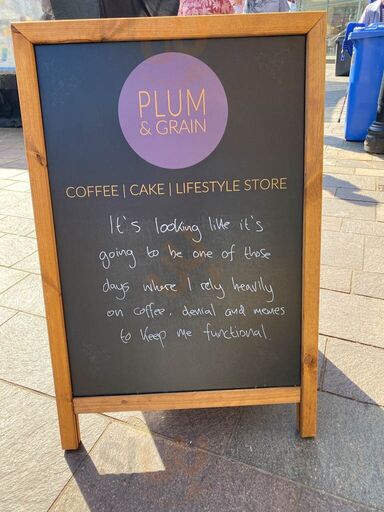 PLUM
& GRAIN
COFFEE | CAKE | LIFESTYLE STORE
It's looking like it's
going to be one of those
days where I rely heavily
on coffee, denial and memes
to keep me functional.